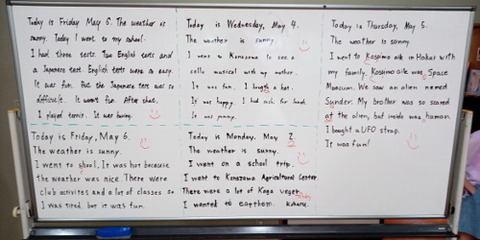 Today is Friday May 6. The weather is
sunny. Today I went to my school.
I had three tests. Two English tests and
a Japanese test. English tests were so easy.
It was fun. But the Japanese test was so
difficult. It wasn't fun. After that,
I played tennis. It was boring.
Today is Wednesday, May 4.
The weather is sunny.
I went to Kanazawa to see a
cello musical with my mother.
It was fun. I bought a hat.
It was happy. I had rich for lunch
It was yummy.
Today is Thursday, May 5.
The weather is sunny.
I went to Kosshimoike in Hakui with
my family. Kosshimoike was Space
Museum. We saw an alien named
Sunder. My brother was so scared
at the alien, but inside was human.
I bought a UFO strap.
It was fun!
Today is Friday, May 6.
The weather is sunny.
I went to shool. It was hot because
the weather was nice. There were
club activites and a lot of classes so
I was tired but it was fun.
Today is Monday, May 2
The weather is sunny.
I went on a school trip.
I went to Kanazawa Agricultural Center.
There were a lot of Kaga veget
I wanted to eat them.